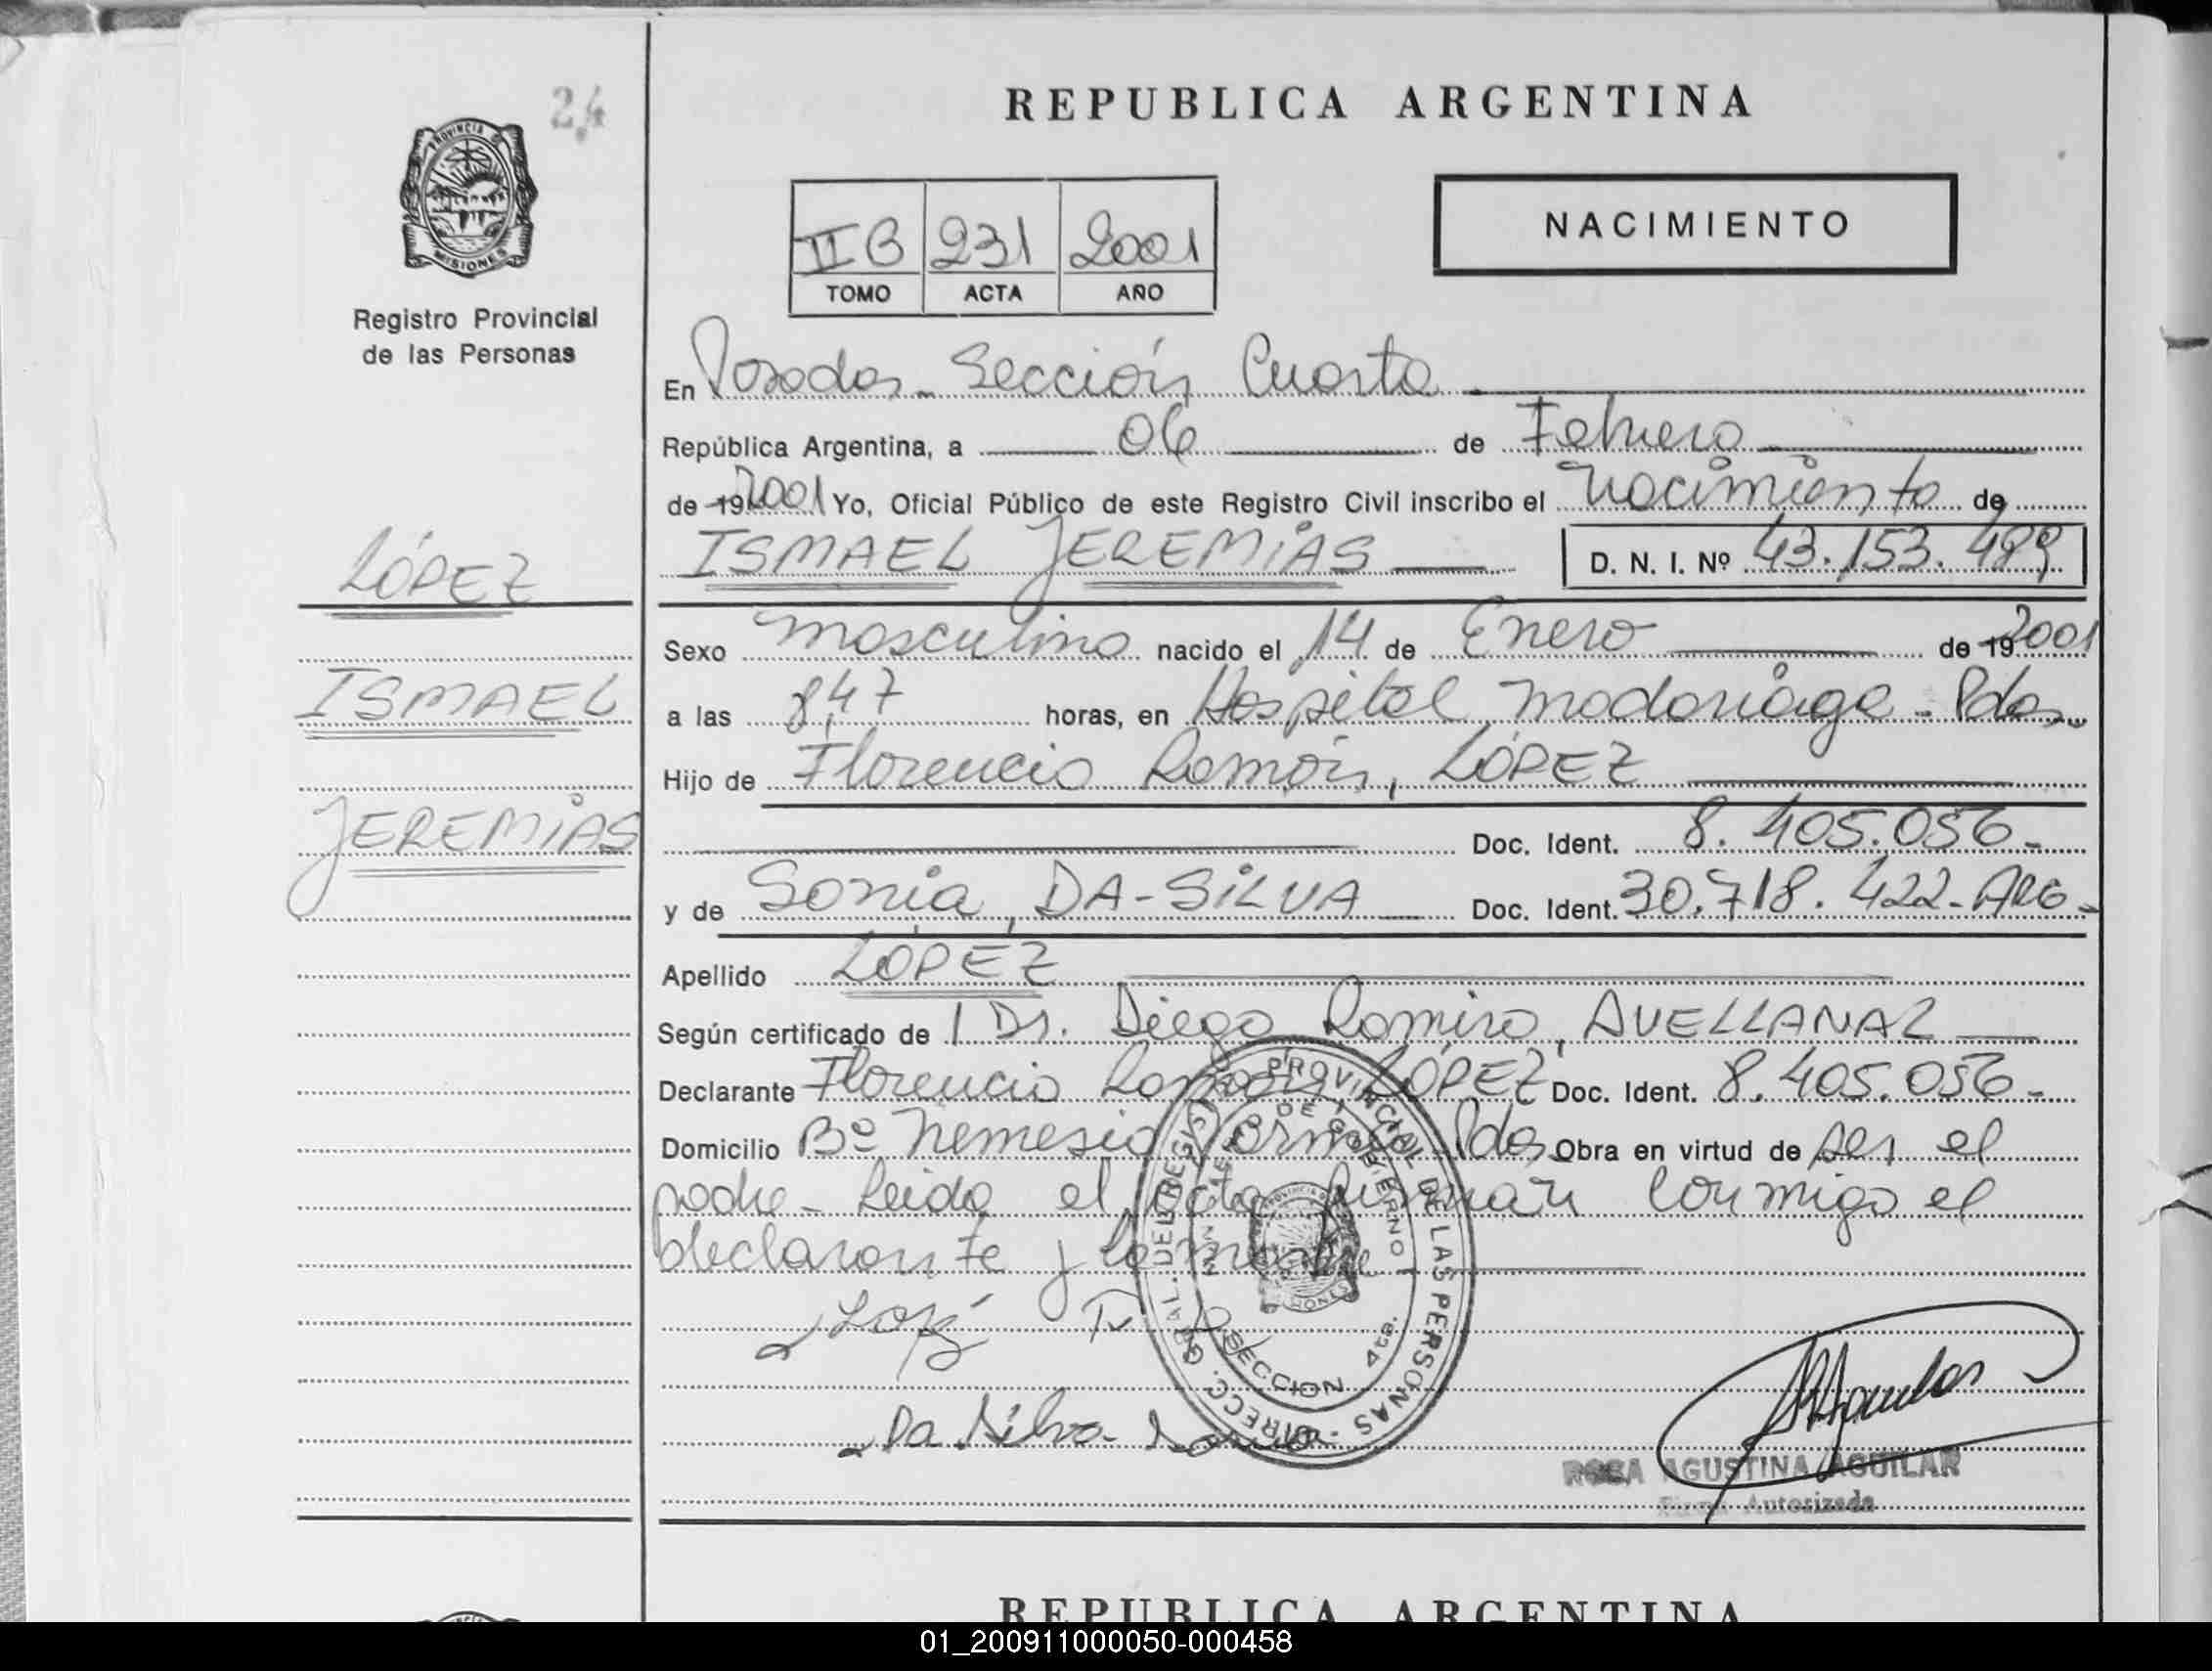 24
PROVINCIA DE
MISIONES
Registro Provincial
de las Personas
LÓPEZ
ISMAEL
JEREMÍAS
REPUBLICA ARGENTINA
II B 231 2001
TOMO ACTA AÑO
NACIMIENTO
En Posadas - Sección Cuarta
República Argentina, a 06 de Febrero
de 19 2001 Yo, Oficial Público de este Registro Civil inscribo el Nacimiento de
ISMAEL JEREMÍAS D. N. I. Nº 43.153.489
Sexo masculino nacido el 14 de Enero de 19 2001
a las 8,47 horas, en Hospital Madariaga - Pdas.
Hijo de Florencio Ramón, LÓPEZ
Doc. Ident. 8.405.056-
y de Sonia, DA-SILVA Doc. Ident. 30.718.422-ARG-
Apellido LÓPEZ
Según certificado de / Dr. Diego Ramiro, AVELLANAL
Declarante Florencio Ramón, LÓPEZ Doc. Ident. 8.405.056-
Domicilio Bº Nemesio Parma - Pdas Obra en virtud de ser el
padre - Leida el acta firman conmigo el
declarante y la madre
Da Silva Sonia
DIRECC. GRAL. DEL REGISTRO PROVINCIAL DE LAS PERSONAS
MINISTERIO DE GOBIERNO
SECCION 4ta.
ROSA AGUSTINA AGUILAR
Firma Autorizada
REPUBLICA ARGENTINA
01_200911000050-000458